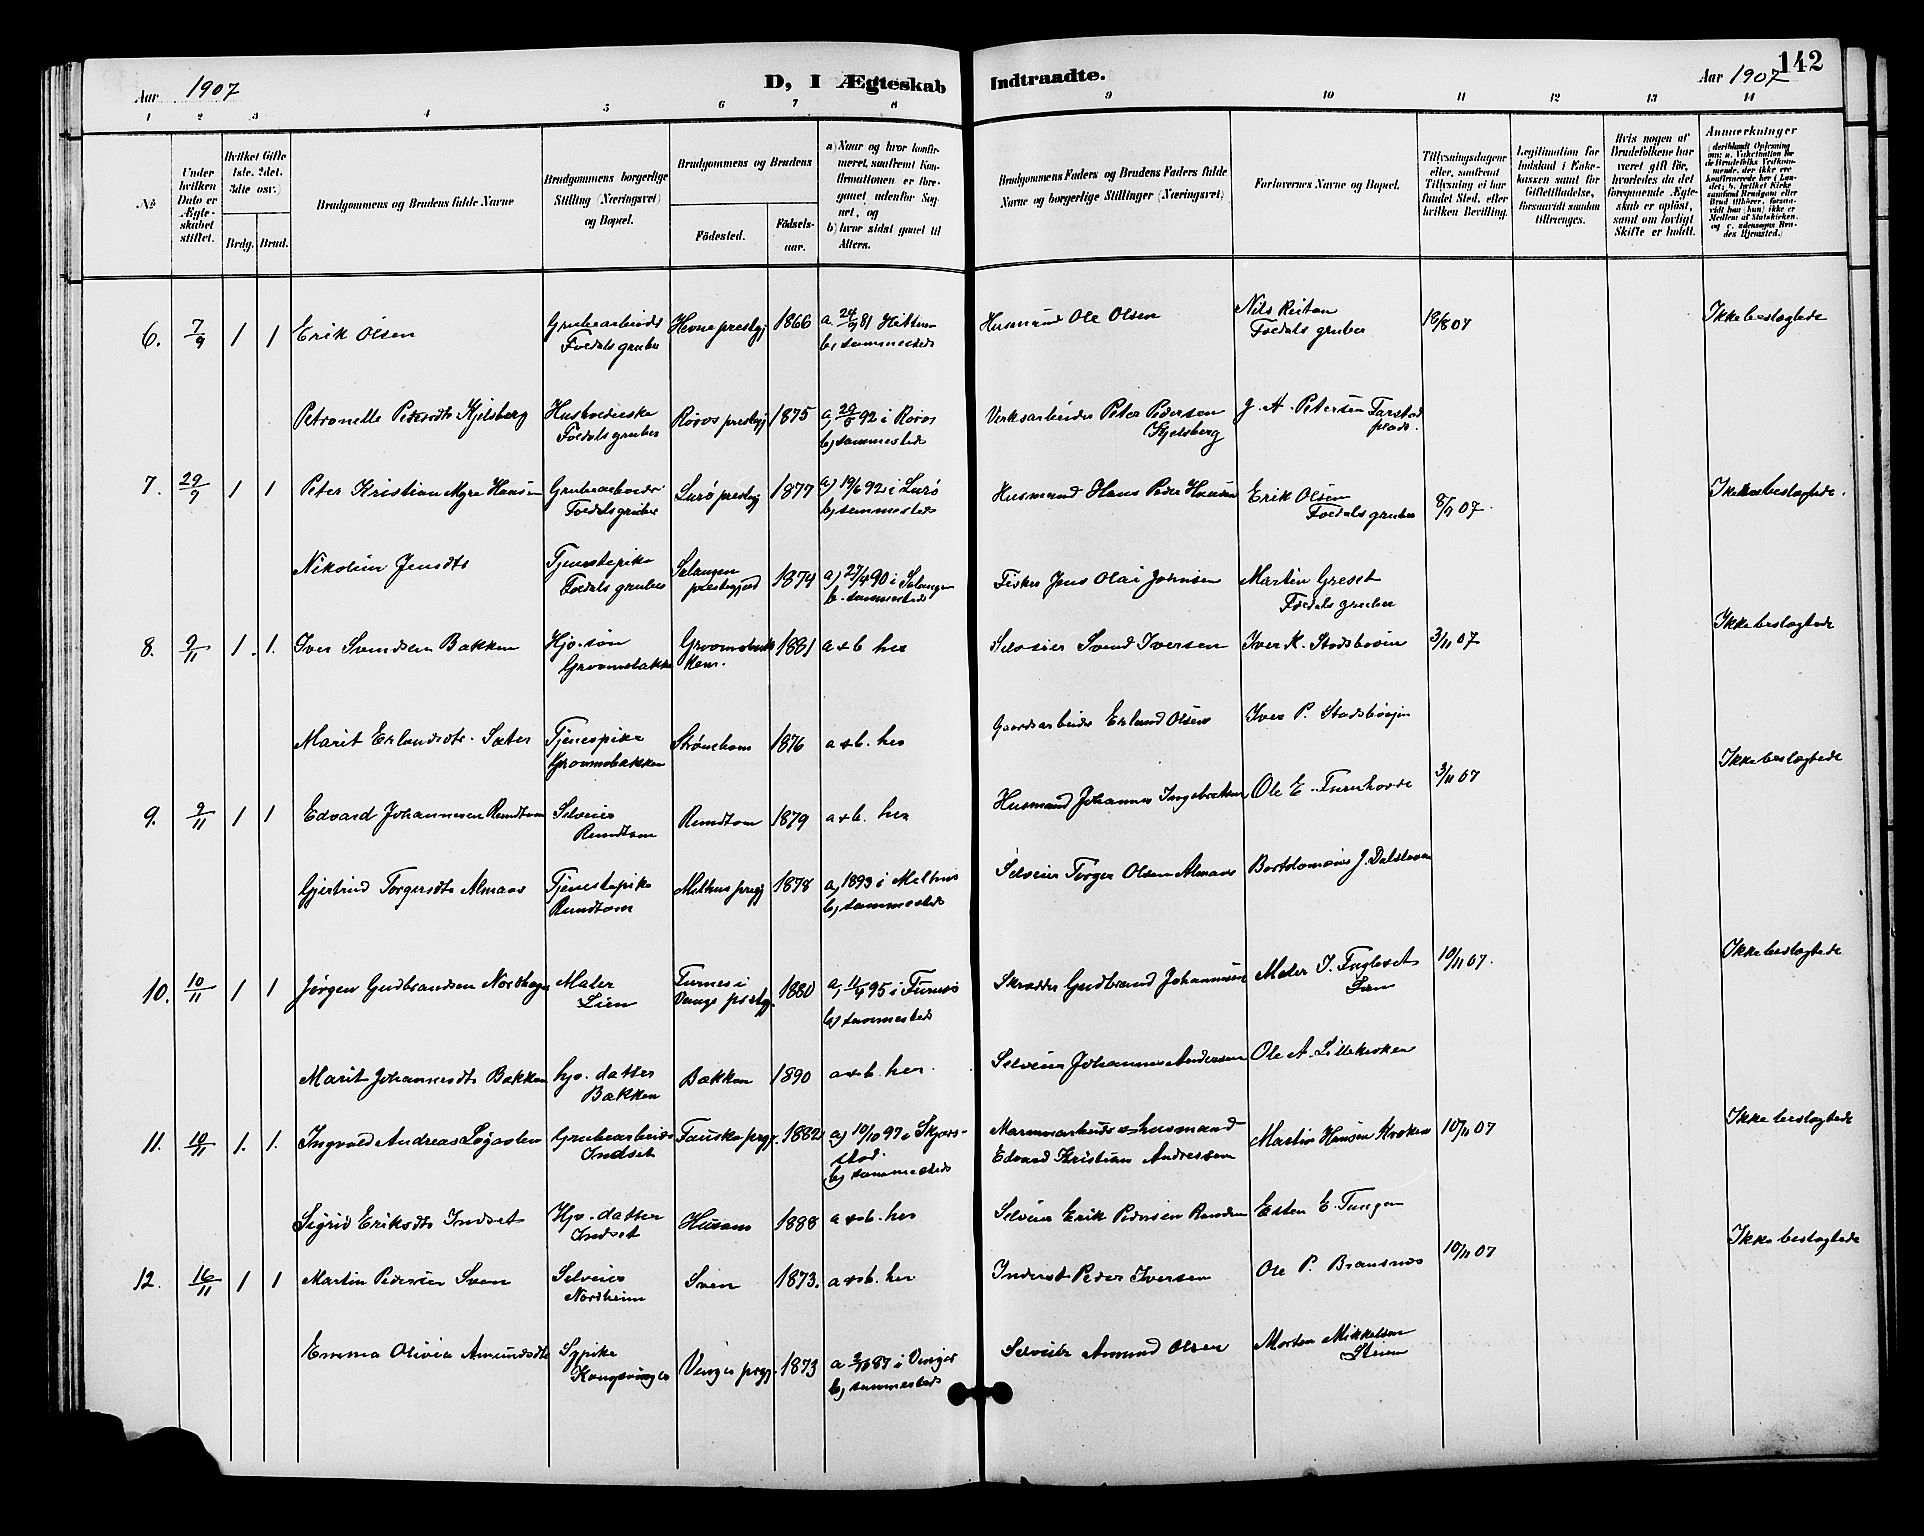 Aar 1907
D, I Ægteskab Indtraadte.
Aar 1907
142
1 2 3 4 5 6 7 8 9 10 11 12 13 14
No
Under hvilken Dato er Ægteskabet stiftet.
Hvilket Gifte 1ste, 2det, 3die osv.)
Brdg. Brud.
Brudgommens og Brudens fulde Navne
Brudgommens borgerlige Stilling (Næringsvei) og Bopæl.
Brudgommens og Brudens
Födested.
Födselsaar.
a) Naar og hvor konfirmeret, saafremt Konfirmationen er foregaaet udenfor Sognet, og
b) hvor sidst gaaet til Alters.
Brudgommens Faders og Brudens Faders fulde Navne og borgerlige Stillinger (Næringsvei)
Forlovernes Navne og Bopæl.
Tillysningsdagene eller, saafremt Tillysning ei har fundet Sted, efter hvilken Bevilling.
Legitimation for Indskud i Enkekassen samt for Giftetilladelse, forsaavidt saadan tiltrænges.
Hvis nogen af Brudefolkene har været gift för, hvorledes da det foregaaende Ægteskab er oplöst, samt om lovligt Skifte er holdt.
Anmærkninger
6. 7/9 1 1 Erik Olsen Grubearbeider Foldals gruber Hevne prestgj 1866 a, 24/9 81 Hitteren b, sammesteds Husmand Ole Olsen Nils Reitan Foldals gruber 18/8 07 Ikke beslægtede
Petronelle Pedersdtr Kjelsberg Husholderske Foldals gruber Røros prestgj 1875 a, 92 i Røros b, sammesteds Verksarbeider Peter Pedersen Kjelsberg J. A. Petersen
7. 29/9 1 1 Peter Kristian Myre Hansen Grubearbeider Foldals gruber Lurø prestgj 1877 a) 19/6 92 i Lurø b, sammesteds Husmand Hans Peder Hansen Erik Olsen Foldals gruber 8/9 07. Ikke beslægtede.
Nikoline Jensdtr Tjenestepike Foldals gruber Salangen prestegjeld 1874 a) 27/4 90 i Salangen b. sammesteds Fisker Jens Olai Johnsen Martin Greset Foldals gruber
8. 9/11 1. 1. Iver Svendsen Bakken Hjv. søn Grovmobakken 1881 a & b. her Selveier Svend Iversen Iver K. Stadsbøien 3/11 07 Ikke beslægtede
Marit Erlandsdtr. Sæter Tjenespike Grovmobakken Strømhem 1876 a & b. her Gaardsarbeider Erland Olsen Iver P. Stadsbøien
9. 9/11 1 1 Edvard Johannesen Rundtom Selveier Rundtom Rundtom 1879 a & b. her Husmand Johannes Ingebretsen Ole E. Furuhovde 3/11 07 Ikke beslægtede
Gjertrud Torgersdtr Almaas Tjenestepike Rundtom Melhus prgj 1878 a, 1893 i Melhus b, sammesteds Selveier Torger Olsen Almaas Bartolomæus J. Dalsløen
10. 10/11 1 1 Jørgen Gudbrandsen Nordhagen Maler Lien Furnes i Vangs prstgj. 1880 a, 95 i Furnes b) sammesteds Skrædder Gudbrand Johannesen Maler I. Fugleset Lien 10/11 07. Ikke beslægtede
Marit Johannesdtr Bakken hjv. datter Bakken Bakken 1890 a & b. her. Selveier Johannes Andersen Ole A. Lillekroken
11. 10/11 1. 1. Ingvald Andreas Løgavlen Grubearbeider Indset Fauske prgj. 1882 a) 10/10 97 i Skjerstad. b) sammesteds Marmorarbeider & husmand Edvard Kristian Andressen Martin Hansen Kroken 10/11 07 Ikke beslægtede
Sigrid Eriksdtr Indset Hjv. datter Indset Husom 1888 a & b. her Selveier Erik Pedersen Randen Esten E. Tangen
12. 16/11 1 1 Martin Pedersen Sven Selveier Nordheim Sven 1873. a & b. her Inderst Peder Iversen Ole P. Bransnes 10/11 07 Ikke beslægtede
Emma Olivia Amundsdtr Sypike Kongsvinger Vinger prgj. 1873 a 87 i Vinger b) sammesteds Selveier Amund Olsen Morten Mikkelsen Steien